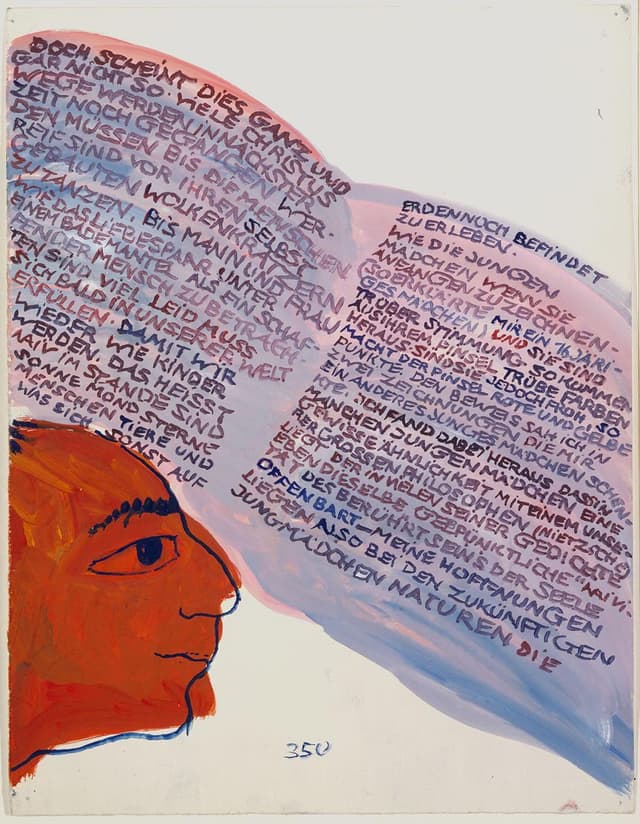 DOCH SCHEINT DIES GANZ UND
GAR NICHT SO. VIELE CHRISTUS
WEGE WERDEN IN NÄCHSTER
ZEIT NOCH GEGANGEN WER-
DEN MÜSSEN BIS DIE MENSCHEN
REIF SIND VOR IHREN SELBST
GEBAUTEN WOLKENKRATZERN
ZU TANZEN. BIS MANN UND FRAU
WIE DAS LIEBESPAAR UNTER
EINEM BADEMANTEL ALS EIN SCHAF-
FENDER MENSCH ZU BETRACH-
TEN SIND VIEL LEID MUSS
SICH BALD IN UNSERER WELT
ERFÜLLEN. DAMIT WIR
WIEDER WIE KINDER
WERDEN. DAS HEISST
NAIV IM STANDE SIND
SONNE MOND STERNE
MENSCHEN TIERE UND
WAS SICH SONST AUF
ERDEN NOCH BEFINDET
ZU ERLEBEN.
WIE DIE JUNGEN
MÄDCHEN WENN SIE
ANFANGEN ZU ZEICHNEN-
(SO ERKLÄRTE MIR EIN 16 JÄRI-
GES MÄDCHEN) UND SIE SIND
TRÜBER STIMMUNG. SO KOMMEN
AUS IHREN PINSEL TRÜBE FARBEN
HERAUS. SIND SIE JEDOCH FROH, SO
MACHT DER PINSEL ROTE UND GELBE
PUNKTE. DEN BEWEIS SAH ICH IN
ZWEI ZEICHNUNGEN DIE MIR
EIN ANDERES JUNGES MÄDCHEN SCHIN-
KTE. ICH FAND DABEI HERAUS DASS IN
MANCHEN JUNGEN MÄDCHEN EINE
GEWISSE ÄHNLICHKEIT MIT EINEM UNSE-
RER GROSSEN PHILOSOPHEN (NIETZSCHE)
LIEGT. DER IN VIELEN SEINER GEDICHTE
EBEN DIESELBE GEPÜNKTLICHTE "NAIVI-
TÄT" DES BERÜHRTSEINS DER SEELE
OFFENBART — MEINE HOFFNUNGEN
LIEGEN ALSO BEI DEN ZUKÜNFTIGEN
JUNGMÄDCHEN NATUREN DIE
350